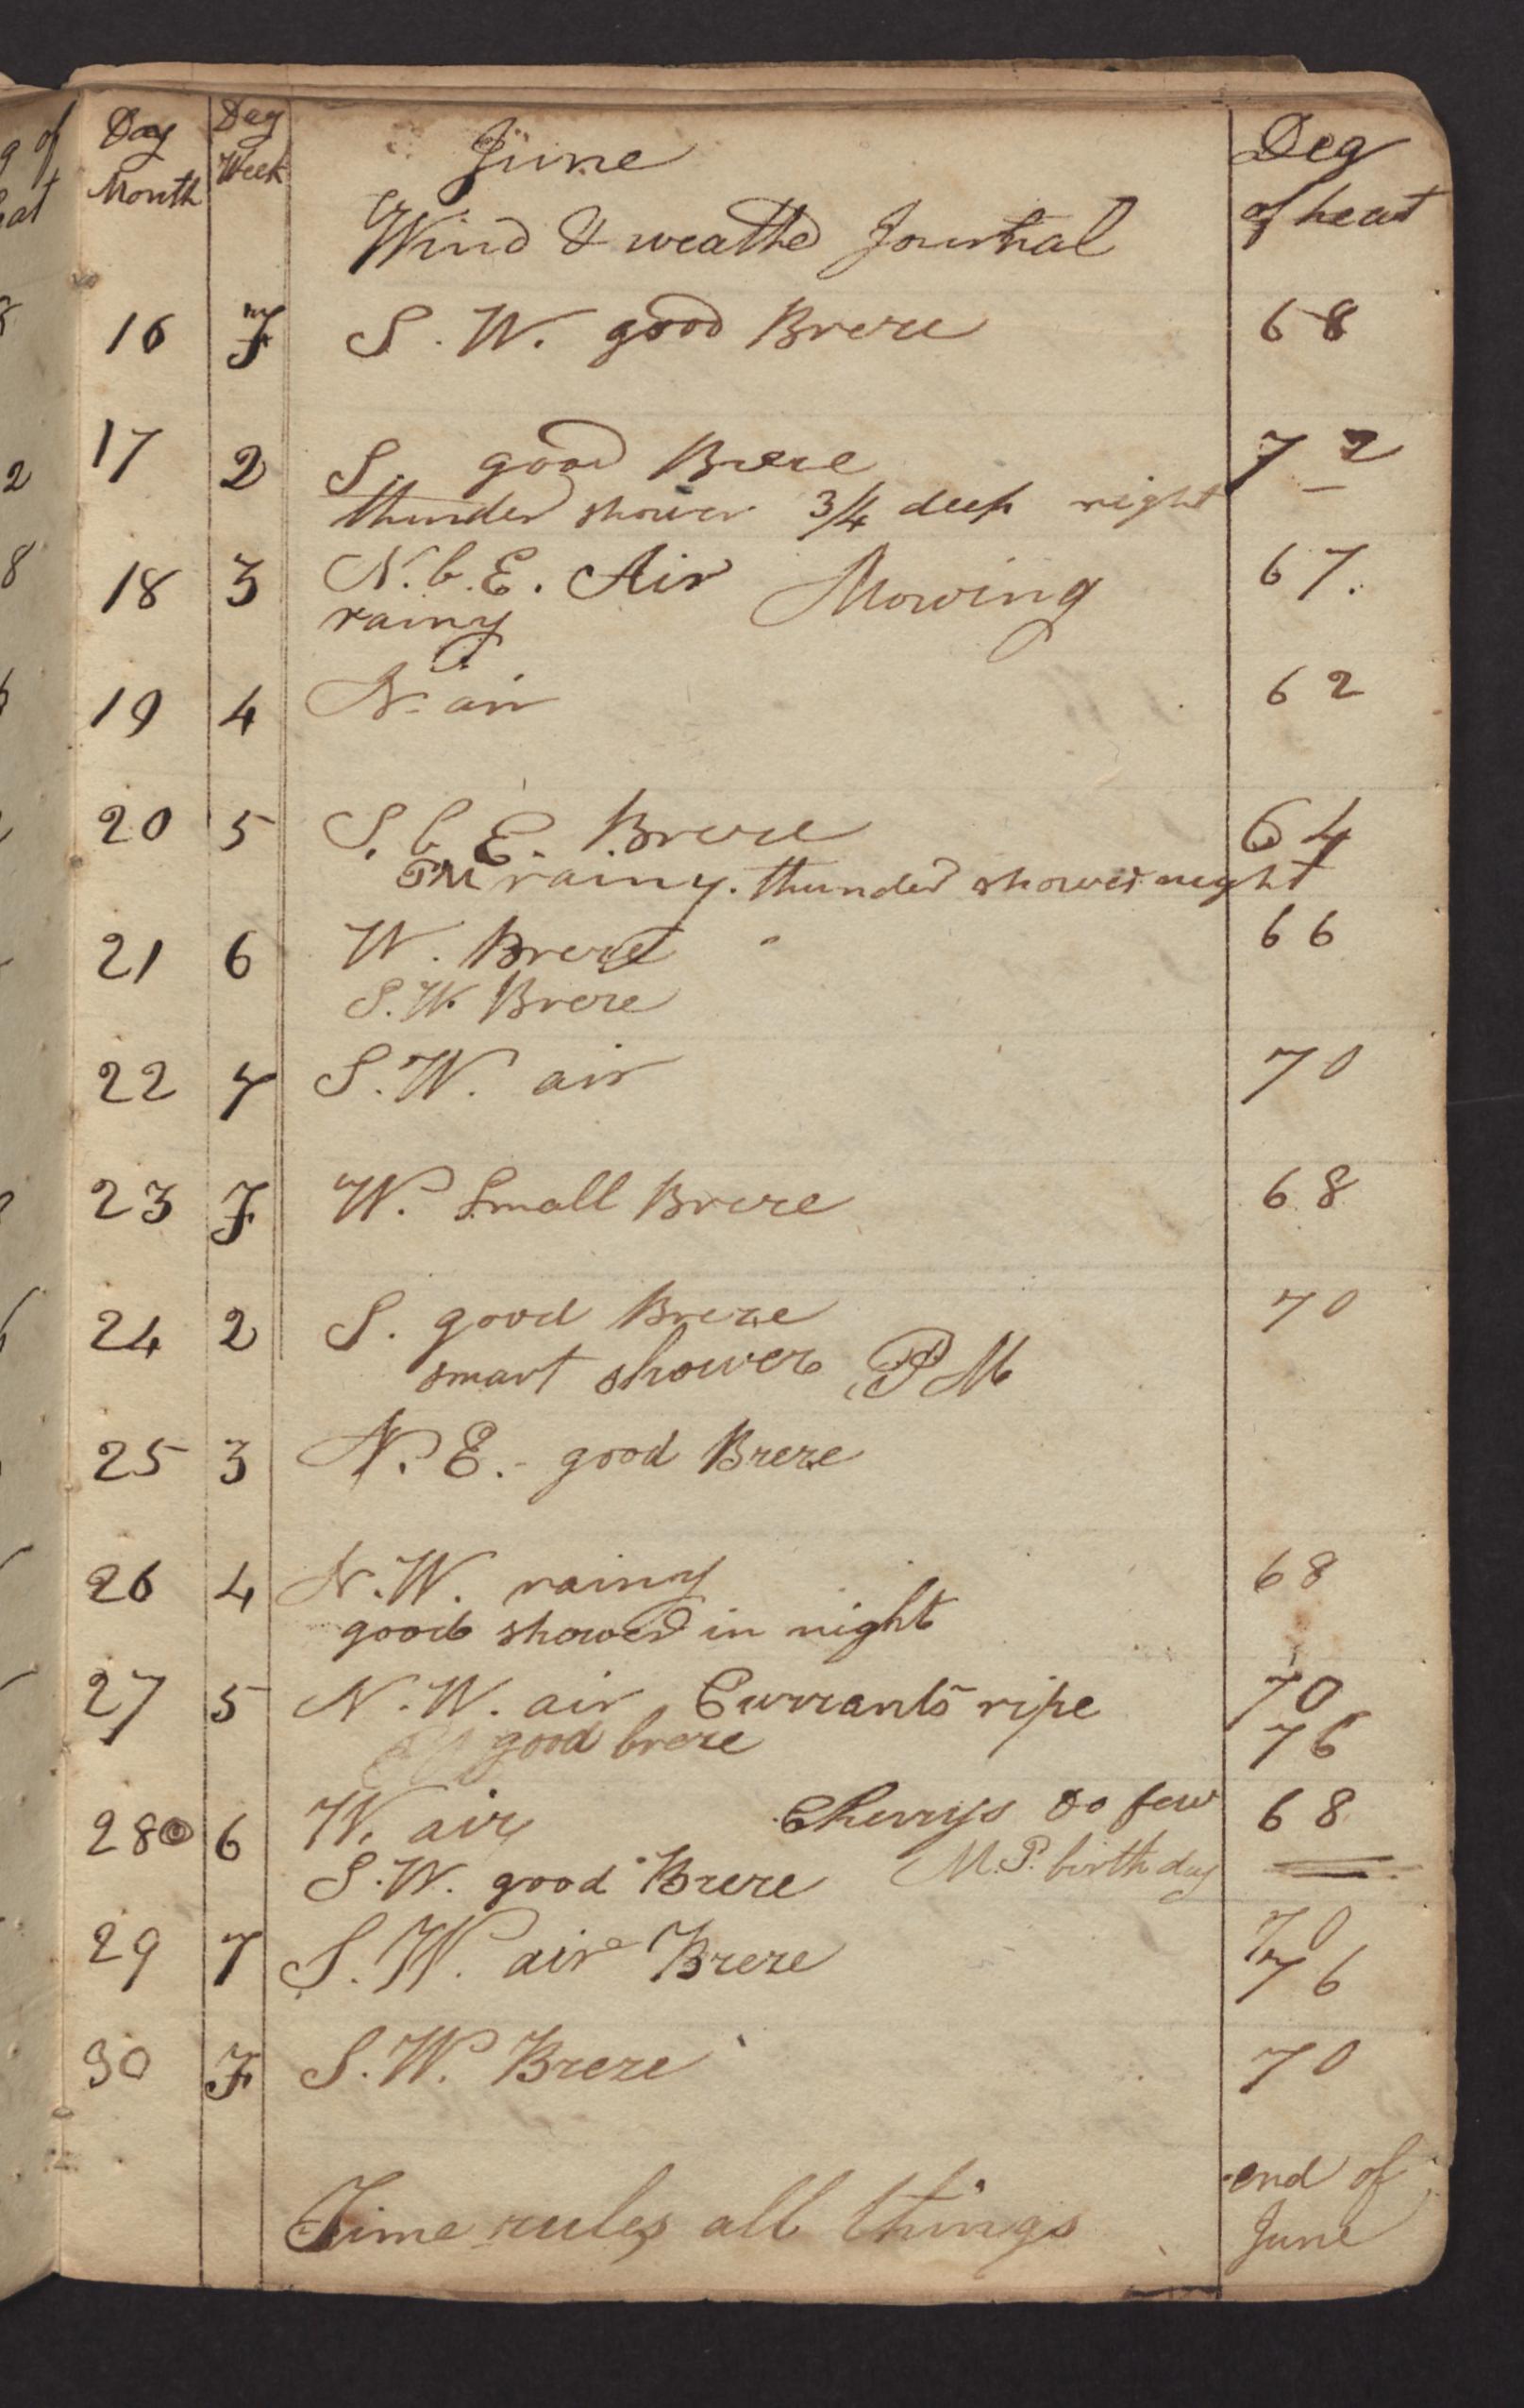 Day Month | Day Week | June | Deg of heat
Wind & weather Journal
16 | F | S. W. good Breze | 68
17 | 2 | S. good Breze | 72
thunder shower 3/4 deep night
18 | 3 | N. b. E. Air Mowing | 67.
rainy
19 | 4 | N. air | 62
20 | 5 | S. b E. Breze | 64
PM rainy. thunder shower night
21 | 6 | W. Breze | 66
S. W. Breze
22 | 7 | S. W. air | 70
23 | F | W. Small Breze | 68
24 | 2 | S. good Breze | 70
smart shower P M
25 | 3 | N. E. - good Breze
26 | 4 | N. W. rainy | 68
good shower in night
27 | 5 | N. W. air Currants ripe | 70
good breze | 76
28 | 6 | W. air Cherrys do few | 68
S. W. good Breze M. P. birth day
29 | 7 | S. W. air Breze | 70
76
30 | F | S. W. Breze | 70
Time rules all things | end of
June